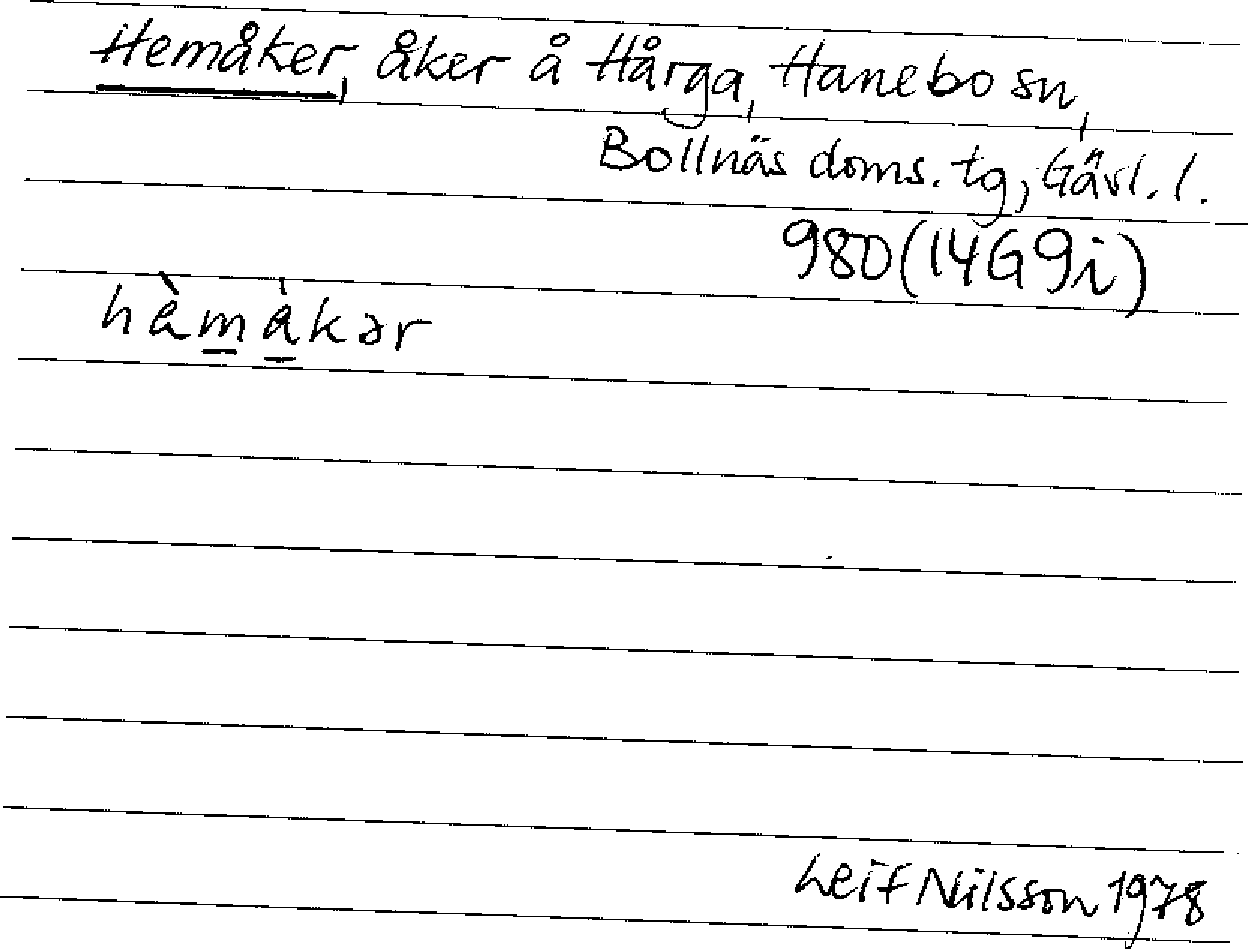 Hemåker, åker å Hårga, Hanebo sn,
Bollnäs doms. tg, Gävl. l.
980 (14G9i)
hàmàkər
Leif Nilsson 1978